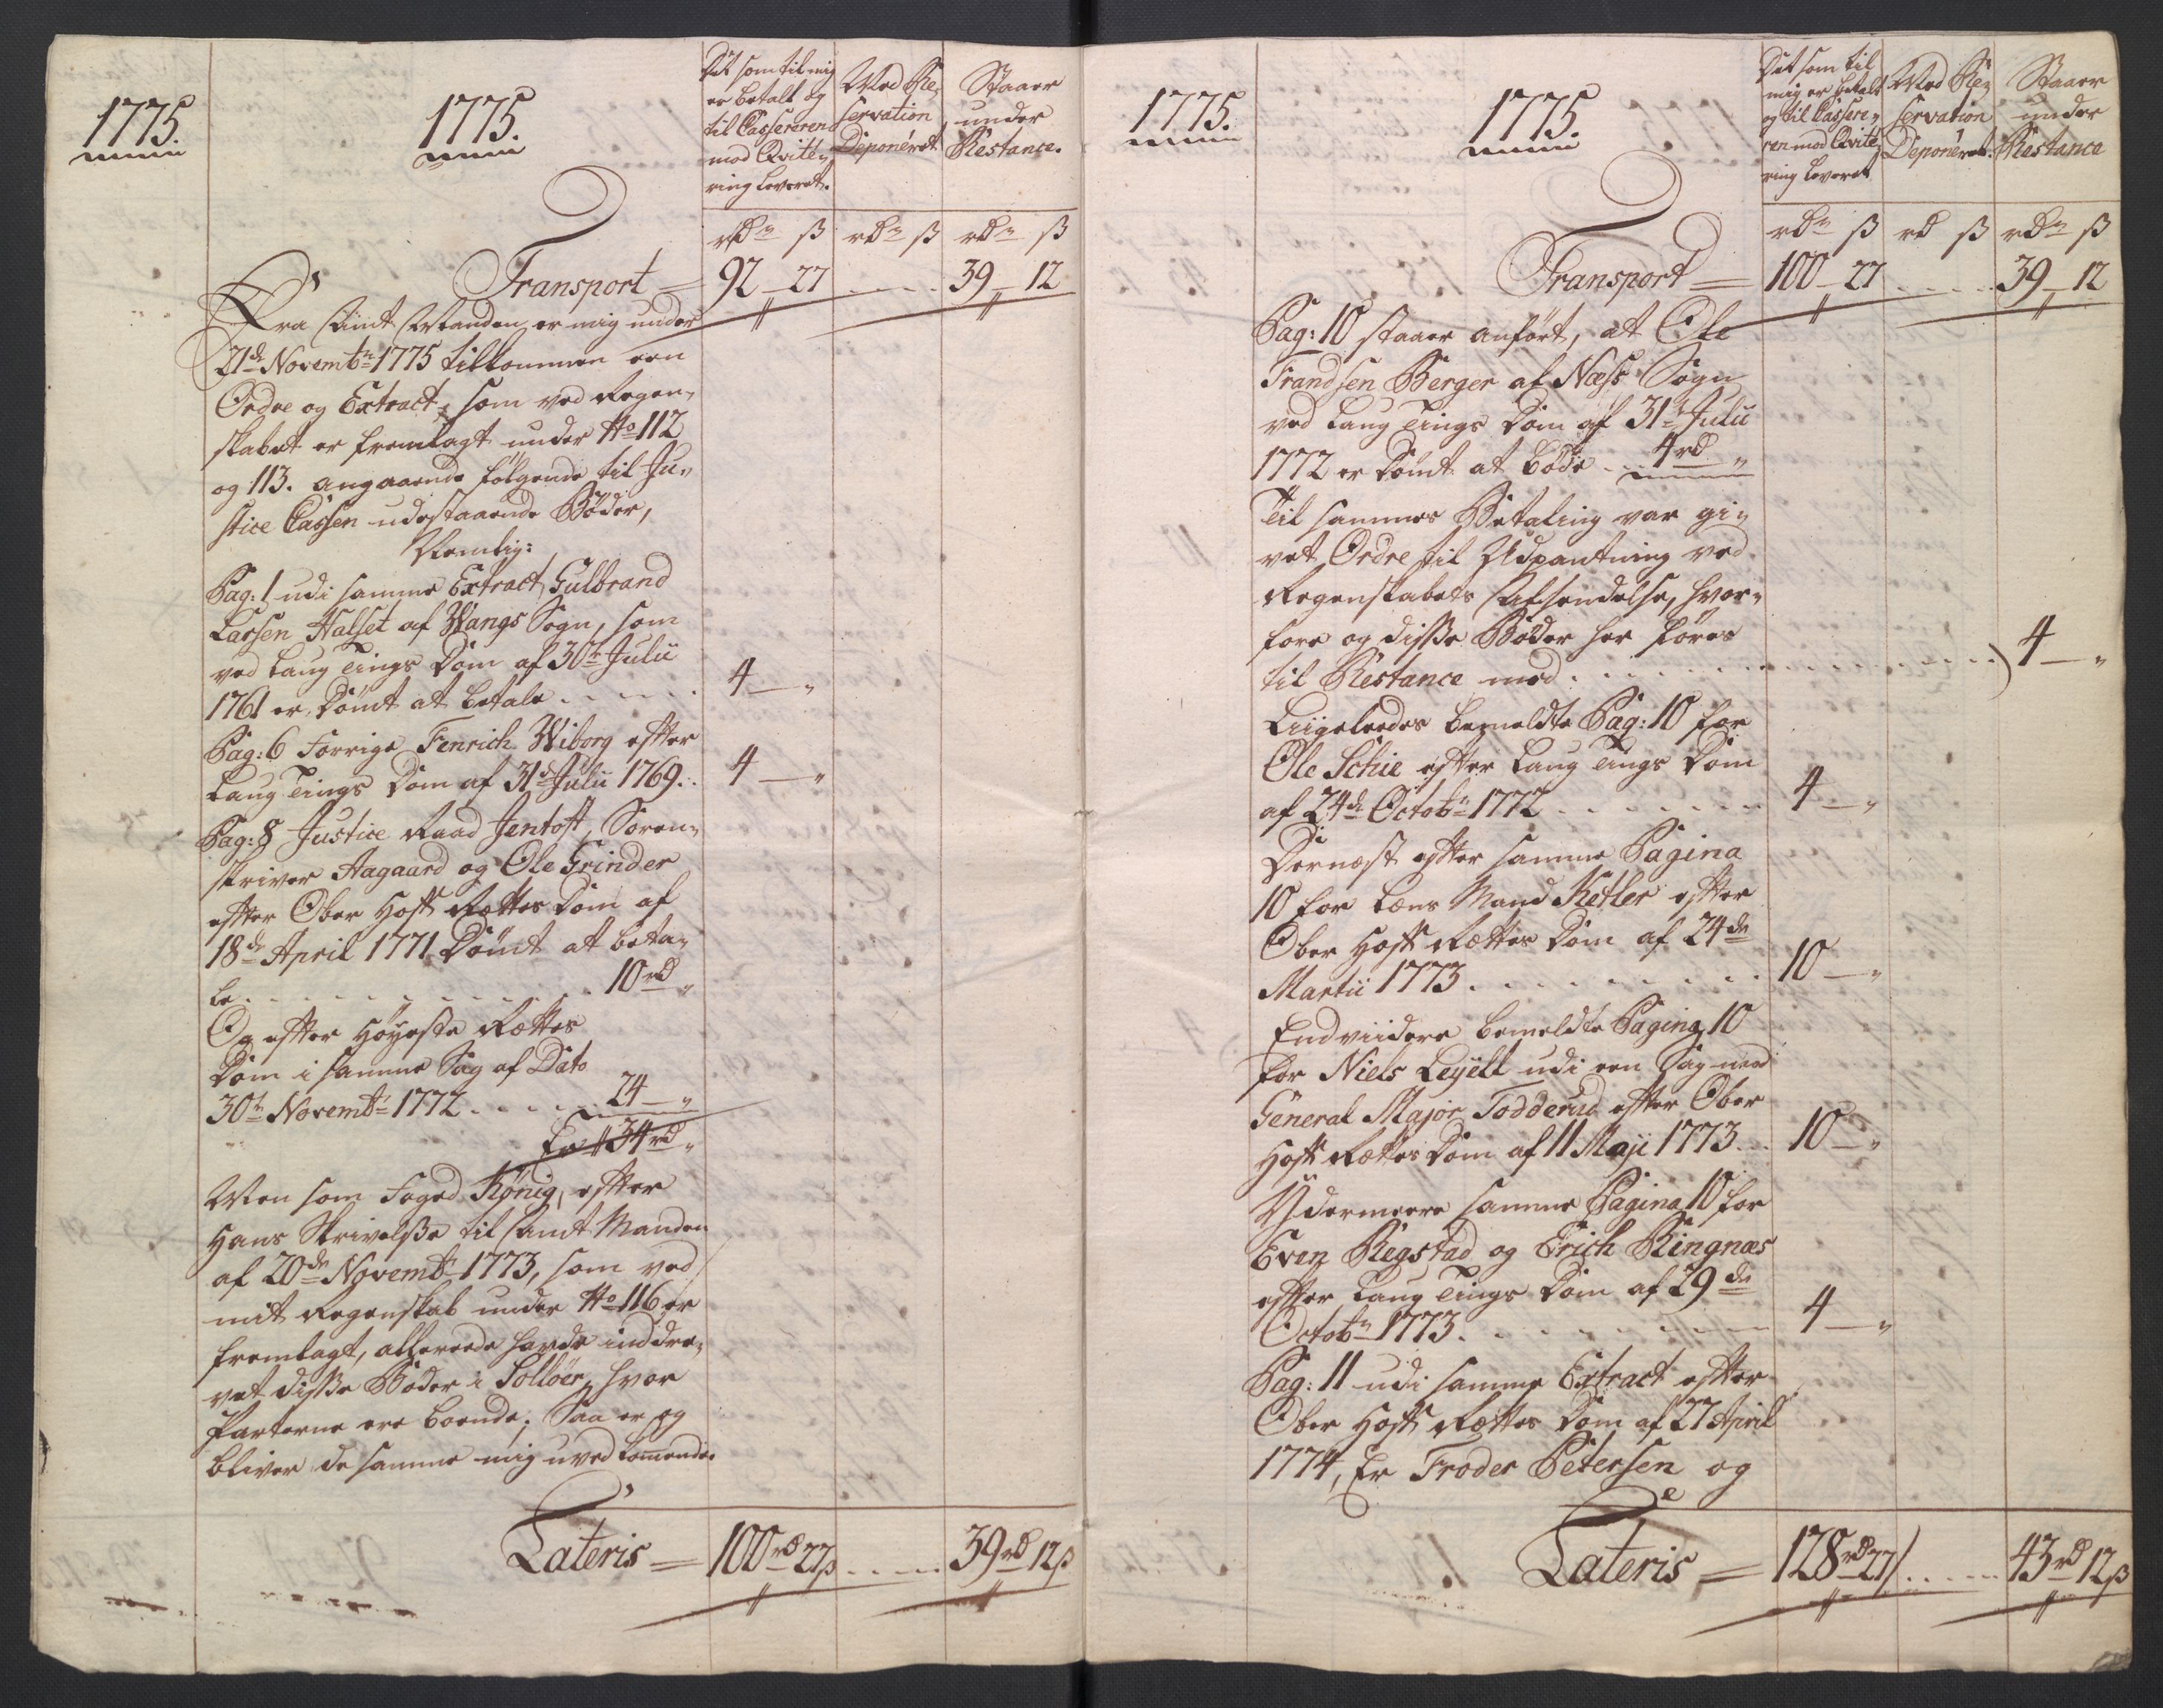 1775.
1775.
Det som til mig
er betalt og
til Cassereren
mod Qvite-
ring leveret.
Med Re-
servation
Deponeret.
Staaer
under
Restance.
rd ß rd ß rd ß
Transport = 92 - 27 . . . . 39 - 12
Fra Amt Manden er mig under
21de Novembr 1775 tilkommen een
Ordre og Extract, som ved Regen-
skabet er fremlagt under No 112
og 113. angaaende følgende til Ju-
stice Cassen udestaaende Bøder,
Nemlig:
Pag: 1 udi samme Extract, Gulbrand
Larsen Halset af Wangs Sogn, som
ved Laug Tings Dom af 30te Julii
1761 er Dømt at betale . . . . . 4 - "
Pag: 6 Forrige Fenrich Wiborg efter
Laug Tings Dom af 31de Julii 1769 . . 4 - "
Pag: 8 Justice Raad Jentoft, Soren-
skriver Aagaard og Ole Grinder
efter Ober Hoff Rettes Dom af
18de April 1771 Dømt at beta-
le . . . . . . . . . . 10 rd "
Og efter Høyeste Rettes
Dom i samme Sag af Dato
30te Novembr 1772 . . . . . 24 - "
Er 34 rd "
Men som Foged König, efter
Hans Skrivelse til Amt Manden
af 20de Novembr 1773, som ved
mit Regenskab under No 116 er
fremlagt, allereede havde inddre-
vet disse Bøder i Solløer, hvor
Parterne ere boende; Saa er og
bliver de samme mig uvedkommende.
Lateris = 100 rd 27 ß . . . . 39 rd 12 ß
1775.
1775.
Det som til
mig er betalt
og til Casseré-
ren mod Qvite-
ring leveret
Med Re-
servation
Deponeret.
Staaer
under
Restance
rd ß rd ß rd ß
Transport = 100 - 27 . . . . . 39 - 12
Pag: 10 staaer anført, at Ole
Frandsen Berger af Næss Sogn
ved Laug Tings Dom af 31te Julii
1772 er Dømt at bøde . . . 4 rd "
Til sammes Betaling var gi-
vet Ordre til Udpantning ved
Regenskabets Afsendelse, hvor-
fore og disse Bøder her føres
til Restance med . . . . . . . . . . . . . 4 - "
Liigeleedes bemeldte Pag: 10 for
Ole Schie efter Laug Tings Dom
af 24de Octobr 1772 . . . . . . . 4 - "
Dernæst efter samme Pagina
10 for Lens Mand Ketler efter
Ober Hoff Rettes Dom af 24de
Martii 1773 . . . . . . . . . 10 - "
Endviidere bemeldte Pagina 10
for Niels Leyell udi een Sag mod
General Major Todderud efter Ober
Hoff Rettes Dom af 11 Maji 1773 . . 10 - "
Ydermeere samme Pagina 10 for
Even Regstad og Erich Ringnæs
efter Laug Tings Dom af 29de
Octobr 1773 . . . . . . . . . 4 - "
Pag: 11 udi samme Extract efter
Ober Hoff Rettes Dom af 27 April
1774, Er Troder Petersen og
Lateris = 128 rd 27 ß . . . . . 43 rd 12 ß